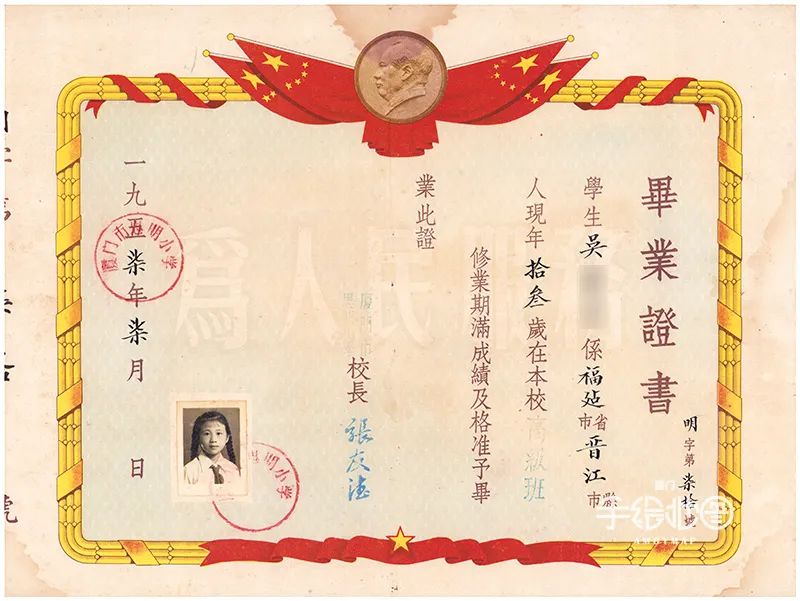 畢業證書
明字第柒拾號
學生吳 係福建省市晋江縣市
人現年拾叁歲在本校高級班
修業期滿成績及格准予畢
業此證
校長 張友德
一九五柒年柒月 日
厦门市思明小学
思明小学
為人民服務
手绘地图